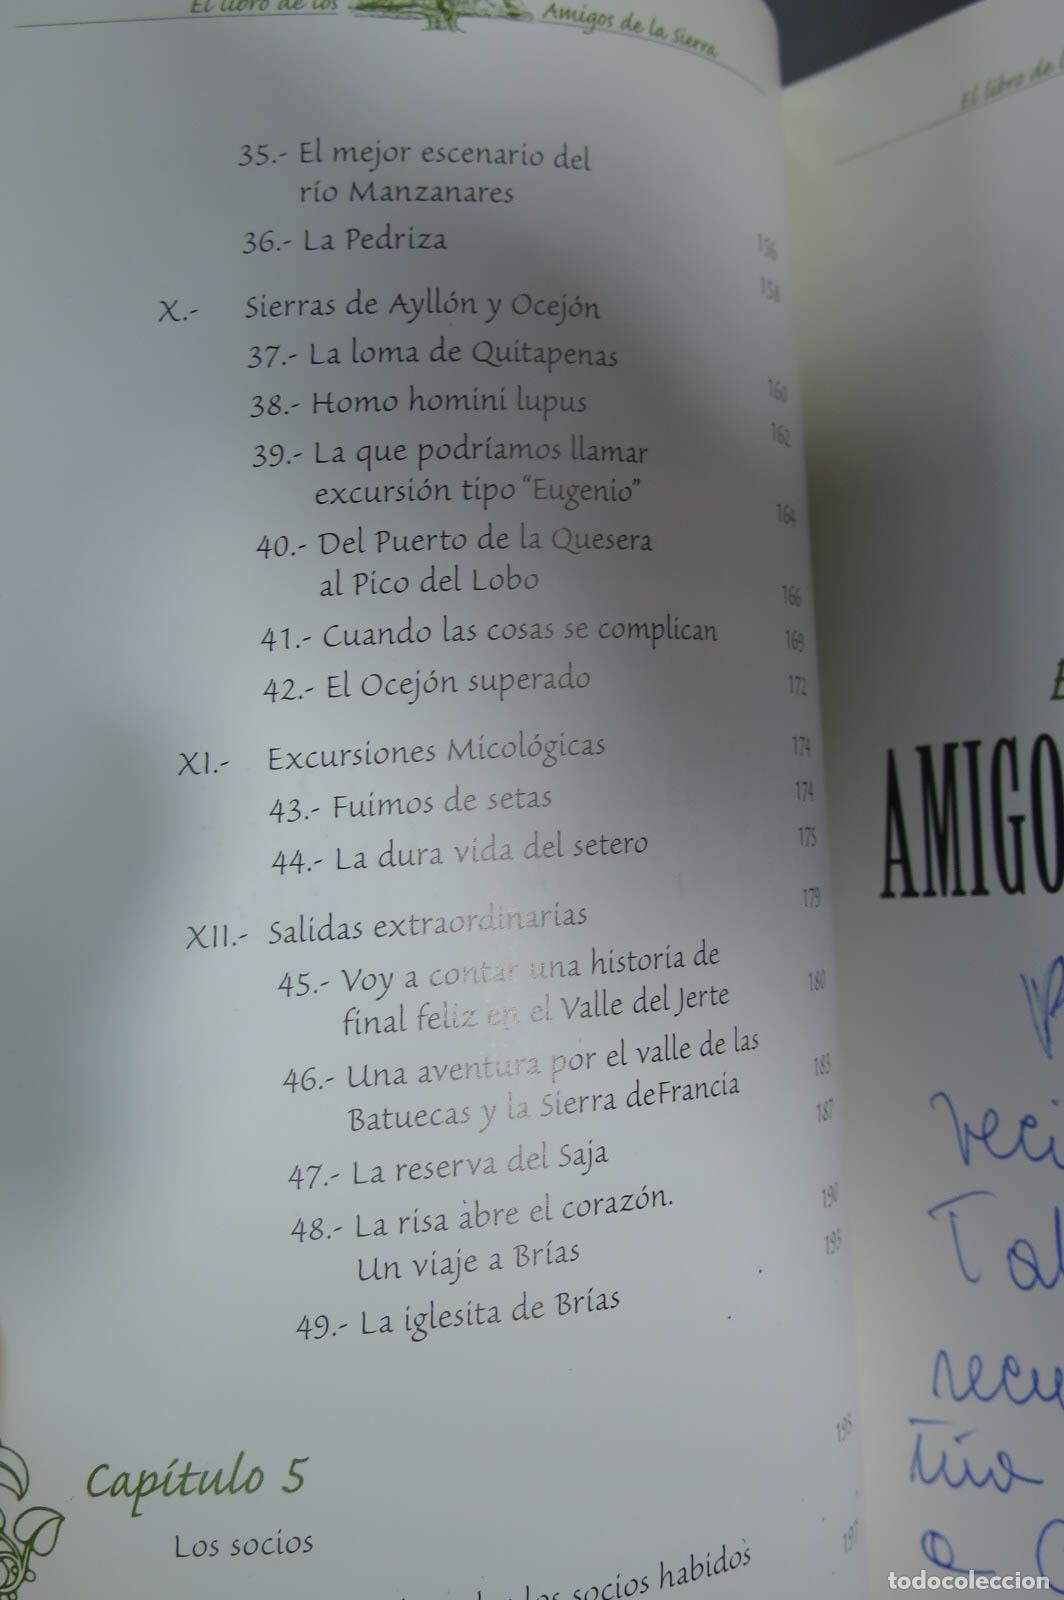 El libro de los Amigos de la Sierra
35.- El mejor escenario del
río Manzanares 156
36.- La Pedriza 158
X.- Sierras de Ayllón y Ocejón
37.- La loma de Quitapenas 160
38.- Homo homini lupus 162
39.- La que podríamos llamar
excursión tipo “Eugenio” 164
40.- Del Puerto de la Quesera
al Pico del Lobo 166
41.- Cuando las cosas se complican 169
42.- El Ocejón superado 172
XI.- Excursiones Micológicas 174
43.- Fuimos de setas 174
44.- La dura vida del setero 175
XII.- Salidas extraordinarias 179
45.- Voy a contar una historia de
final feliz en el Valle del Jerte 180
46.- Una aventura por el valle de las
Batuecas y la Sierra deFrancia 183
47.- La reserva del Saja 187
48.- La risa abre el corazón.
Un viaje a Brías 190
49.- La iglesita de Brías 193
Capítulo 5 195
Los socios 197
los socios habidos
El libro de
AMIGO
todocoleccion